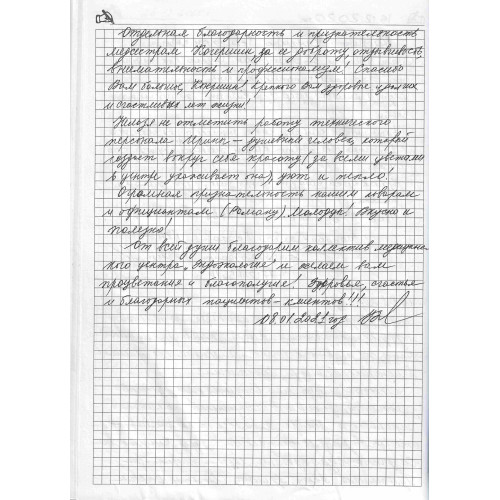 Отдельная благодарность и признательность
медсестрам Катеринам за ее доброту, отзывчивость,
внимательность и профессионализм! Спасибо
Вам большое, Катерина! Крепкого Вам здоровья удачных
и счастливых лет жизни!
Нельзя не отметить работу технического
персонала Ирины – душевный человек, который
создает вокруг себя красоту! (за всеми цветами
в центре ухаживает она), уют и тепло!
Огромная признательность нашим поварам
и официантам (Роману) Молодцы! Вкусно и
полезно!
От всей души благодарим коллектив медицинс-
кого центра и желаем вам
процветания и благополучия! Здоровья, счастья
и благодарных пациентов – клиентов!!!
08.01.2021 год